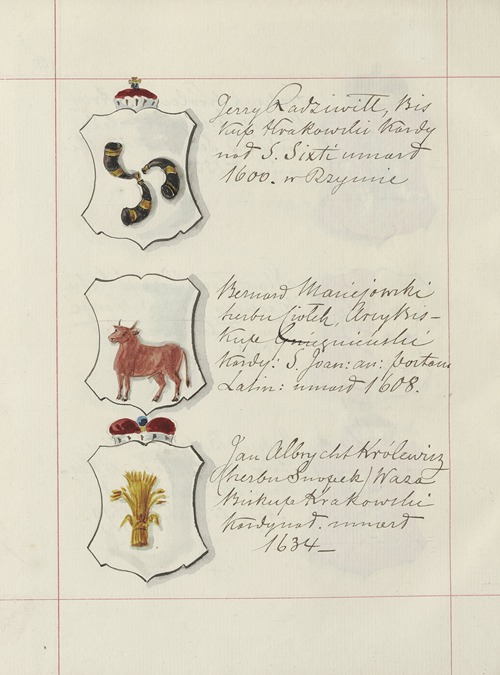 Jerzy Radziwiłł, Bis
kup Krakowski Kardy
nał S. Sixti umarł
1600. w Rzymie
Bernard Maciejowski
herbu Ciołek, Arcy Bis-
kup Gnieznieński
Kardy: S. Joan: an: portam
Latin: umarł 1608.
Jan Albrycht Królewicz
(herbu Snopek) Waza
Biskup Krakowski
Kardynał. umarł
1634